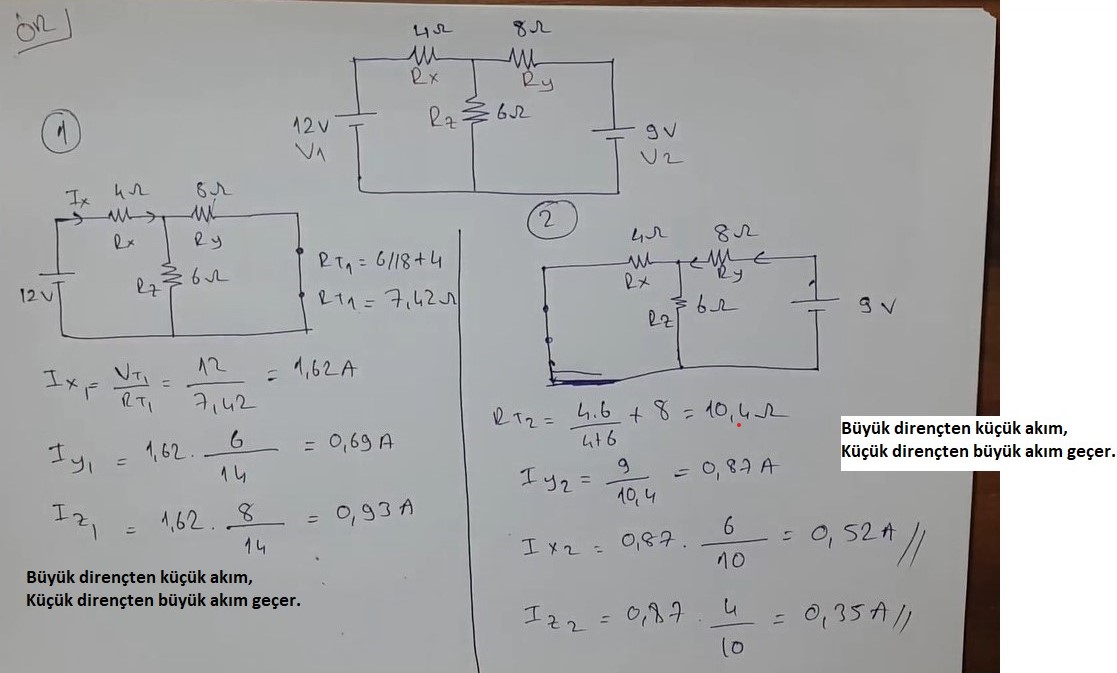 ÖR
4Ω 8Ω
Rx Ry
Rz 6Ω
12V
V1
9V
V2
1
Ix 4Ω 8Ω
Rx Ry
Rz 6Ω
12V
RT1 = 6//8+4
RT1 = 7,42Ω
Ix1 = VT1/RT1 = 12/7,42 = 1,62A
Iy1 = 1,62 . 6/14 = 0,69A
Iz1 = 1,62 . 8/14 = 0,93A
Büyük dirençten küçük akım,
Küçük dirençten büyük akım geçer.
2
4Ω 8Ω
Rx Ry
Rz 6Ω
9V
RT2 = 4.6/4+6 + 8 = 10,4Ω
Iy2 = 9/10,4 = 0,87A
Ix2 = 0,87 . 6/10 = 0,52A//
Iz2 = 0,87 . 4/10 = 0,35A//
Büyük dirençten küçük akım,
Küçük dirençten büyük akım geçer.